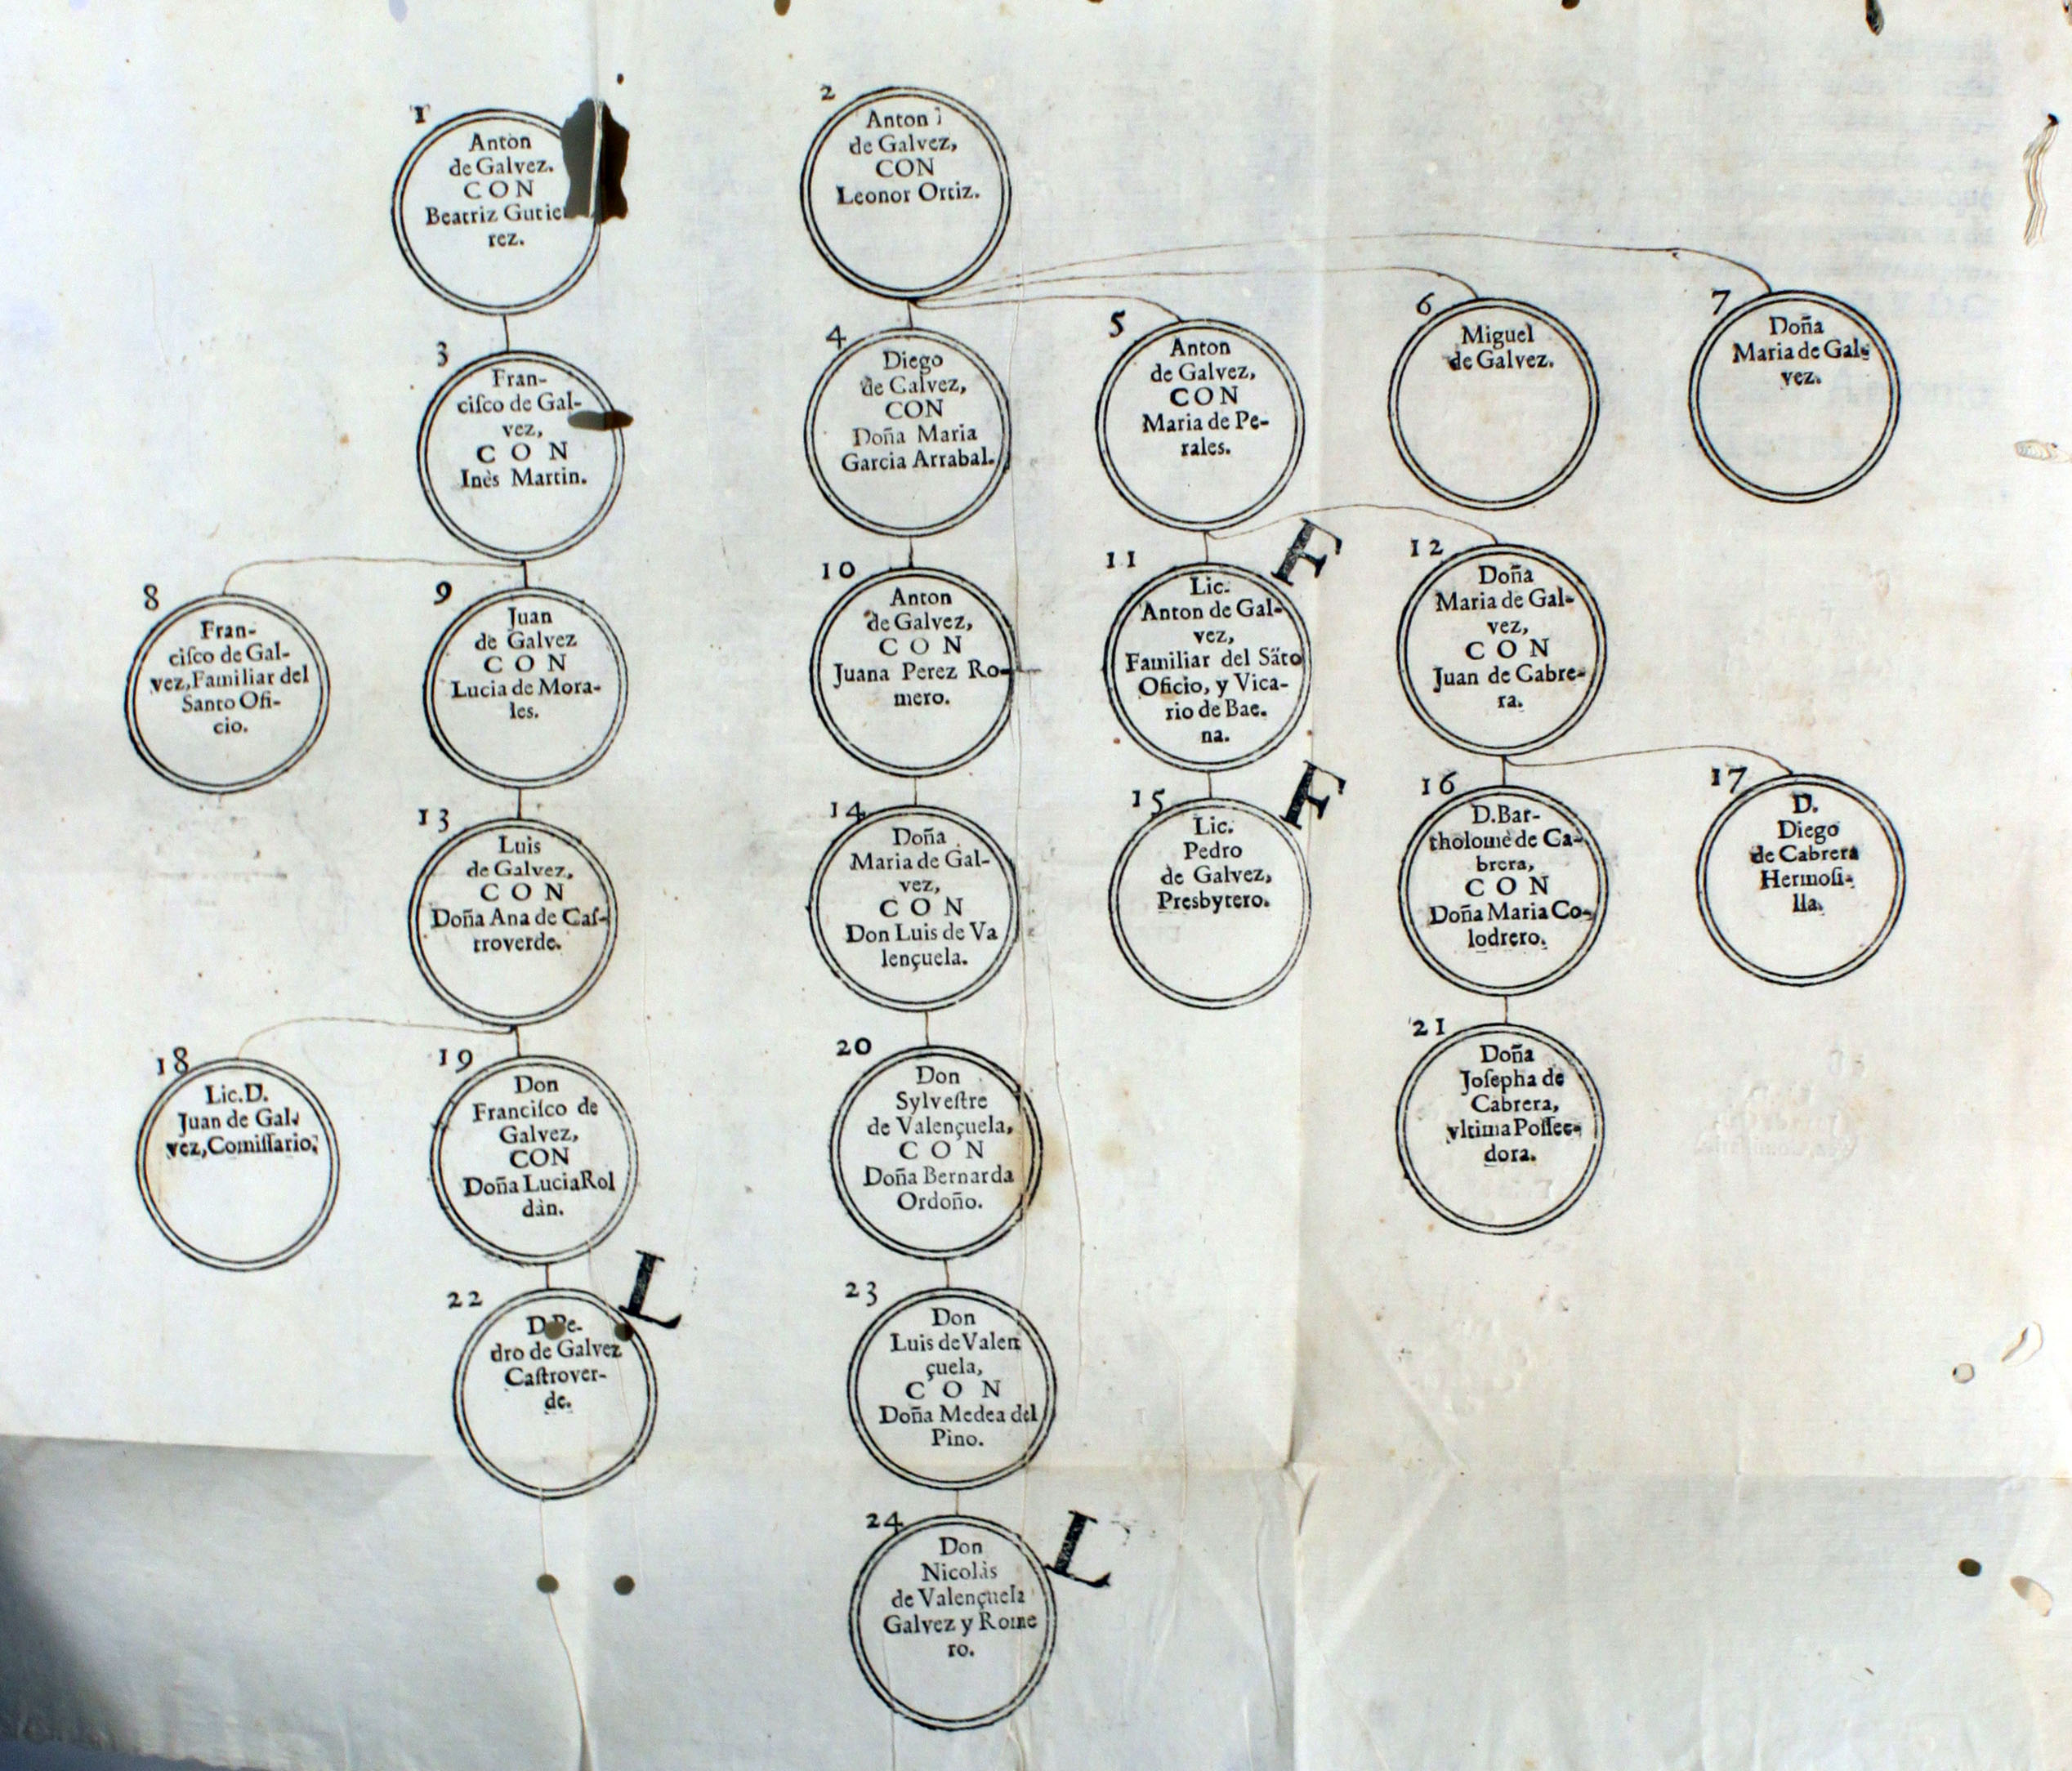 1
Anton
de Galvez.
CON
Beatriz Gutie
rez.
2
Anton
de Galvez,
CON
Leonor Ortiz.
3
Fran-
ciſco de Gal-
vez,
CON
Inès Martin.
4
Diego
de Galvez,
CON
Doña Maria
Garcia Arrabal.
5
Anton
de Galvez,
CON
Maria de Pe-
rales.
6
Miguel
de Galvez.
7
Doña
Maria de Gal-
vez.
8
Fran-
ciſco de Gal-
vez, Familiar del
Santo Ofi-
cio.
9
Juan
de Galvez
CON
Lucia de Mora-
les.
10
Anton
de Galvez,
CON
Juana Perez Ro-
mero.
11
F
Lic.
Anton de Gal-
vez,
Familiar del Sãto
Oficio, y Vica-
rio de Bae.
na.
12
Doña
Maria de Gal-
vez,
CON
Juan de Gabre-
ra.
13
Luis
de Galvez,
CON
Doña Ana de Caſ-
troverde.
14
Doña
Maria de Gal-
vez,
CON
Don Luis de Va
lençuela.
15
F
Lic.
Pedro
de Galvez,
Presbytero.
16
D. Bar-
tholomè de Ca-
brera,
CON
Doña Maria Co-
lodrero.
17
D.
Diego
de Cabrera
Hermoſi-
lla.
18
Lic. D.
Juan de Gal-
vez, Comiſſario.
19
Don
Franciſco de
Galvez,
CON
Doña Lucia Rol
dàn.
20
Don
Sylveſtre
de Valençuela,
CON
Doña Bernarda
Ordoño.
21
Doña
Joſepha de
Cabrera,
vltima Poſſee-
dora.
22
L
D. Pe-
dro de Galvez
Caſtrover-
de.
23
Don
Luis de Valen
çuela,
CON
Doña Medea del
Pino.
24
L
Don
Nicolàs
de Valençuela
Galvez y Rome
ro.